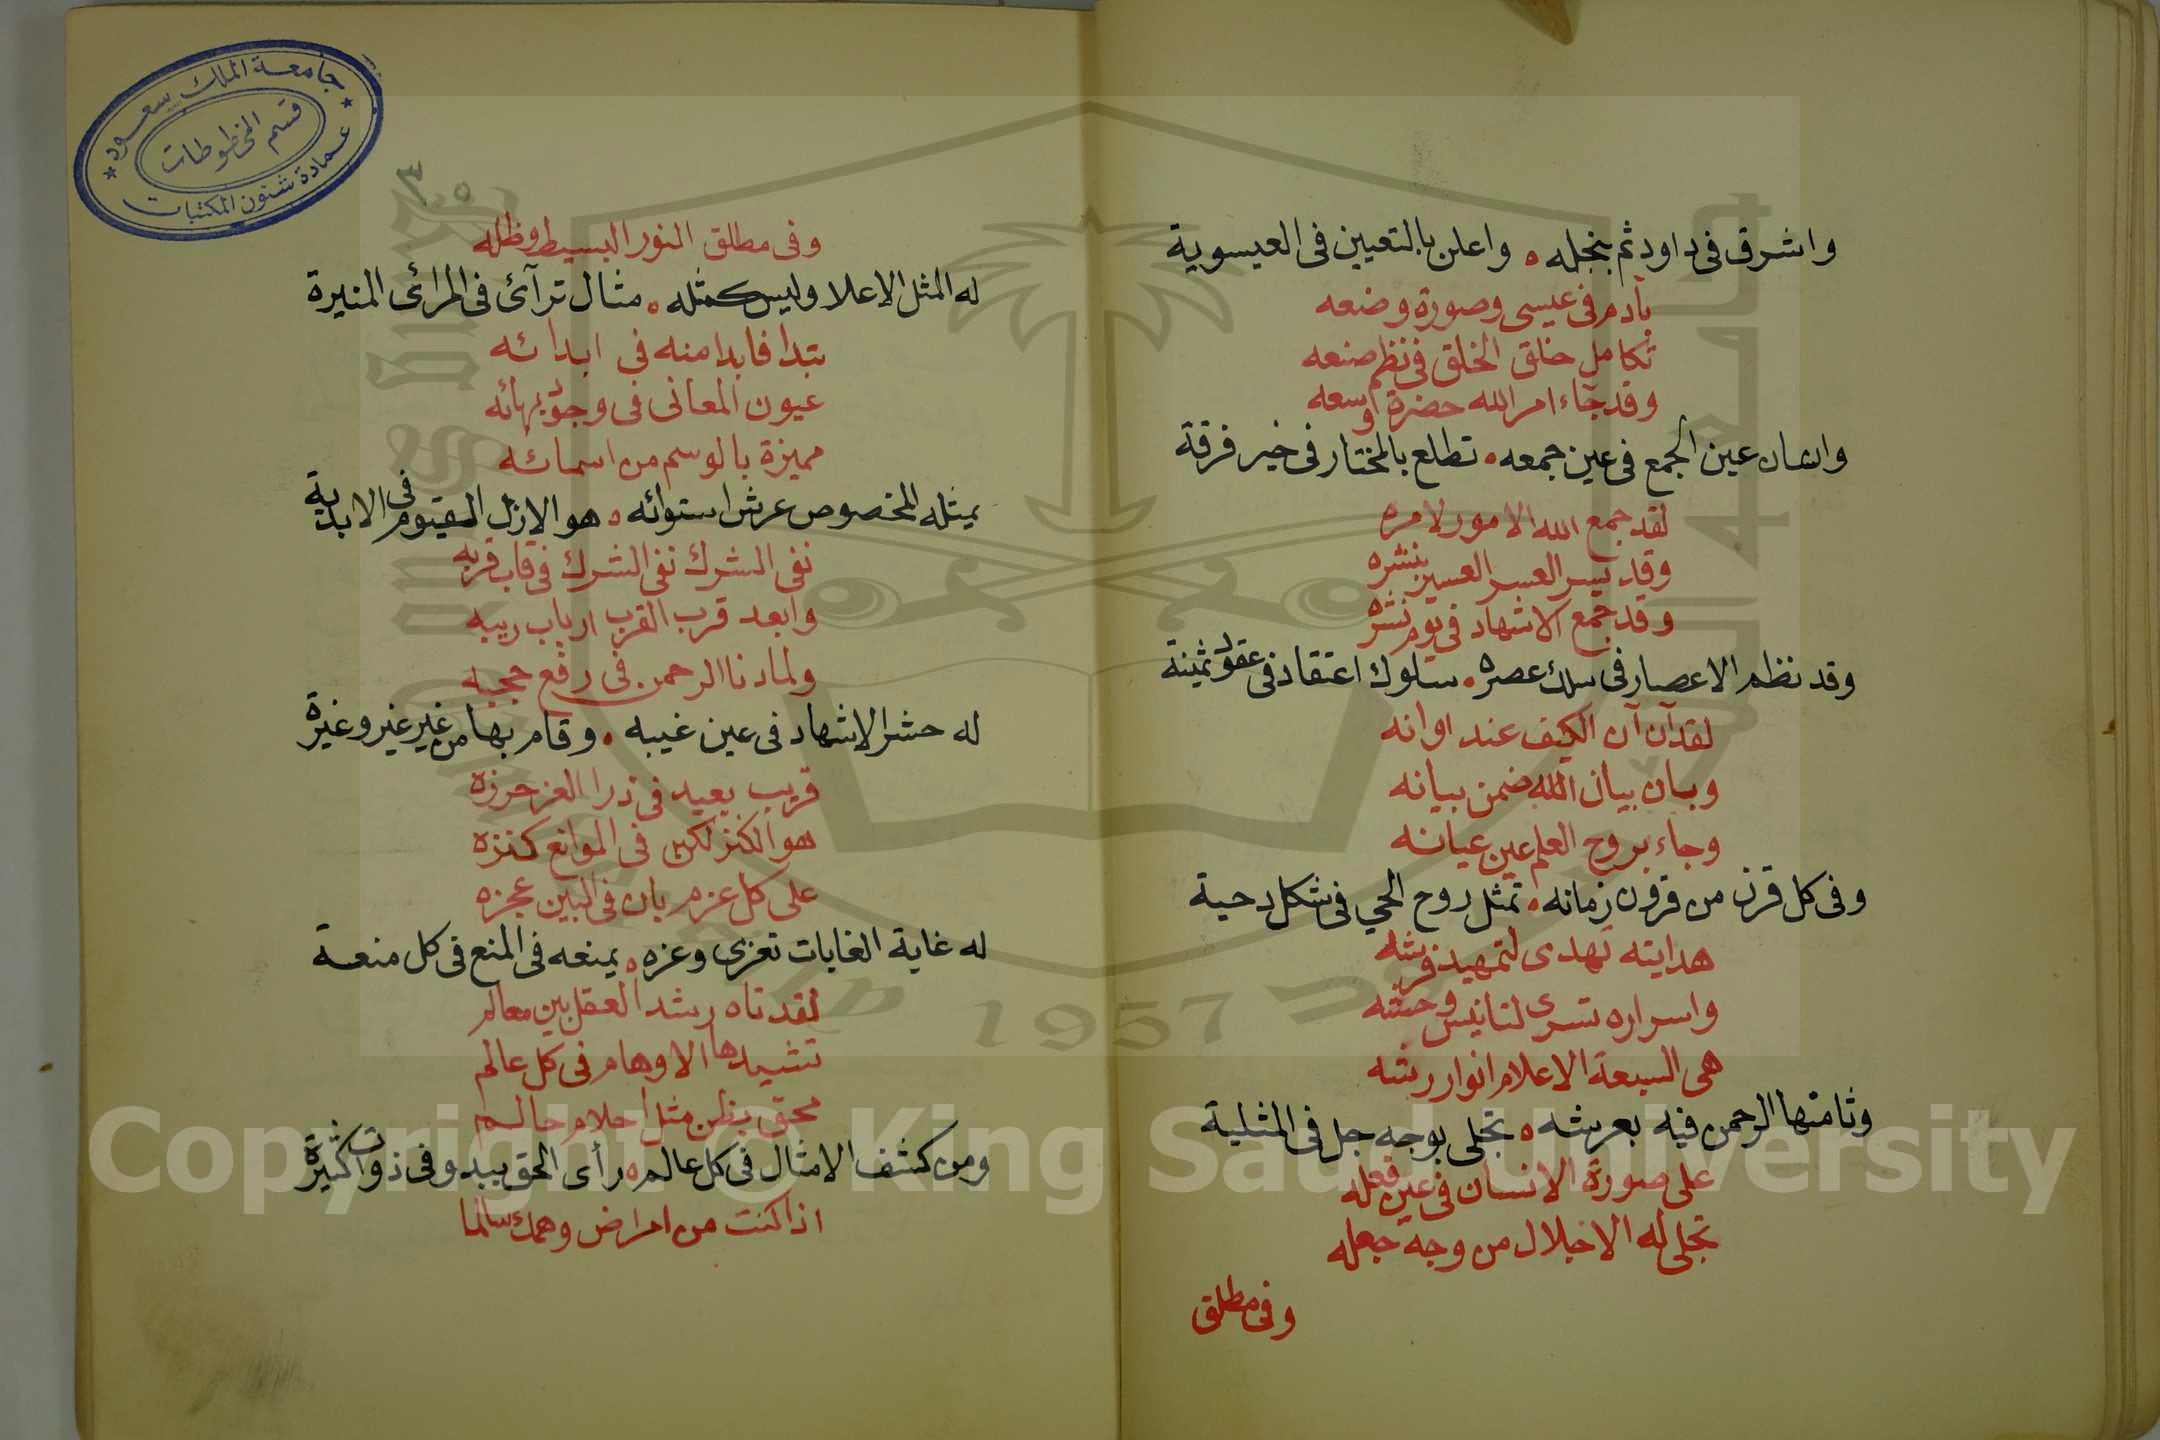 واشرق فى داود ثم بنجله ، واعلن بالتعيين فى العيسوية
بآدم فى عيسى وصورة وضعه
تكامل خلق الخلق فى نظم صنعه
وقد جاء امر الله حضرة اوسعه
وانسان عين الجمع فى عين جمعه ، تطلع بالمختار فى خير فرقة
لقد جمع الله الامور لامره
وقد يسر العسر العسير بنشره
وقد جمع الاشهاد فى يوم نشره
وقد نظم الاعصار فى سلك عصره ، سلوك اعتقاد فى عقود ثمينة
لقد آن آن الكيف عند اوانه
وبان بيان الله ضمن بيانه
وجاء بروح العلم عين عيانه
وفى كل قرن من قرون زمانه ، تمثل روح الحي فى شكل دحية
هدايته تهدى لتمهيد فرشه
واسراره تسرى لتانيس وحشه
هى السبعة الاعلام انوار ربشه
وثامنها الرحمن فيه بعرشه ، تجلى بوجه جل فى المثلية
على صورة الانسان فى عين فعله
تجلى له الاجلال من وجه جعله
وفى مطلق
٣٠
وفى مطلق النور البسيط وظله
له المثل الاعلا وليس كمثله ، مثال ترآئ فى المرائى المنيرة
بتدا فابدا منه فى ابدائه
عيون المعانى فى وجود بهائه
مميزة بالوسم من اسمائه
يمثله المخصوص عرش استوائه ، هو الازل القيوم فى الابدية
نفى الشرك نفى الشرك فى قاب قربه
وابعد قرب القرب ارباب ريبه
ولما دنا الرحمن فى رفع حجبه
له حشر الاشهاد فى عين غيبه ، وقام بها من غير غير وغيرة
قريب بعيد فى ذرا العز حرزه
هو الكنز لكن فى الموانع كنزه
على كل عزم بان فى البين عجزه
له غاية الغايات تعزى وعزه ، يمنعه فى المنع فى كل منعة
لقد تاه رشد العقل بين معالم
تشيدها الاوهام فى كل عالم
محق بظن مثل احلام حالم
ومن كشف الامثال فى كل عالم ، رأى الحق يبدو فى ذوات كثيرة
اذا كنت من امراض وهمك سالما
جامعة الملك سعود
قسم المخطوطات
عمادة شئون المكتبات
1957
Copyright © King Saud University